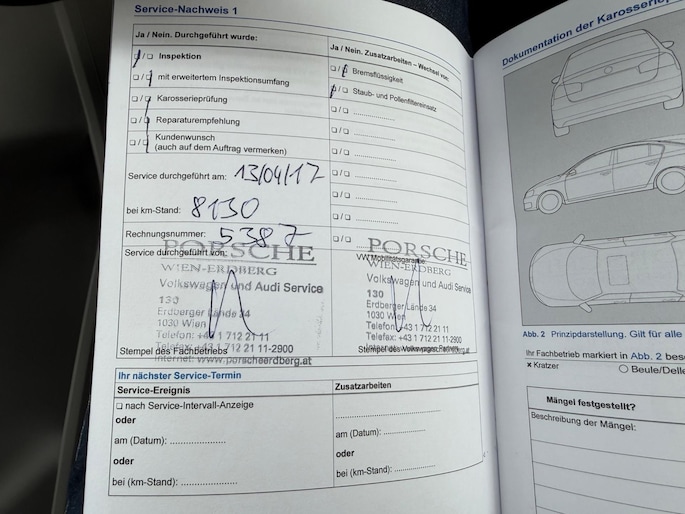 Service-Nachweis 1
Ja / Nein. Durchgeführt wurde:
Ja / Nein. Zusatzarbeiten – Wechsel von:
☐/☐ Inspektion
☐/☐ mit erweitertem Inspektionsumfang
☐/☐ Karosserieprüfung
☐/☐ Reparaturempfehlung
☐/☐ Kundenwunsch
(auch auf dem Auftrag vermerken)
☐/☐ Bremsflüssigkeit
☐/☐ Staub- und Pollenfiltereinsatz
☐/☐ ....................
☐/☐ ....................
☐/☐ ....................
☐/☐ ....................
☐/☐ ....................
☐/☐ ....................
☐/☐ ....................
Service durchgeführt am: 13/04/17
bei km-Stand: 8130
Rechnungsnummer: 5387
Service durchgeführt von:
PORSCHE
WIEN-ERDBERG
Volkswagen und Audi Service
130
Erdberger Lände 34
1030 Wien
Telefon: +43 1 712 21 11
Telefax: +43 1 712 21 11-2900
Internet: www.porscheerdberg.at
Stempel des Fachbetriebs
PORSCHE
VW Mobilitätsgarantie
WIEN-ERDBERG
Volkswagen und Audi Service
130
Erdberger Lände 34
1030 Wien
Telefon: +43 1 712 21 11
Telefax: +43 1 712 21 11-2900
Stempel des Volkswagen Partners
Ihr nächster Service-Termin
Service-Ereignis
☐ nach Service-Intervall-Anzeige
oder
am (Datum): ....................
oder
bei (km-Stand): ....................
Zusatzarbeiten
....................
am (Datum): ....................
oder
bei (km-Stand): ....................
Dokumentation der
Abb. 2 Prinzipdarstellung. Gilt für alle
Ihr Fachbetrieb markiert in Abb. 2
x Kratzer
○ Beule/Delle
Mängel festgestellt?
Beschreibung der Mängel: